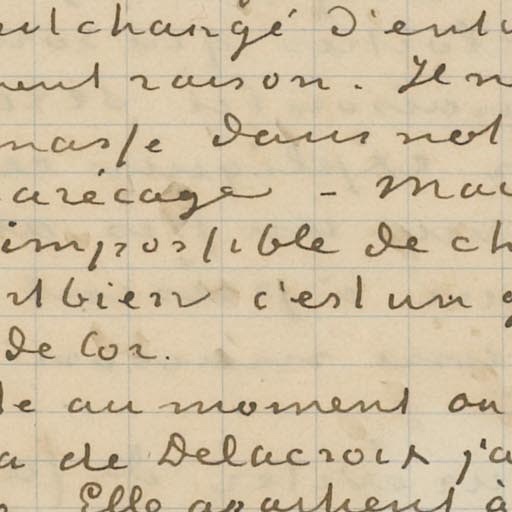 eut changé d'ent
ment raison. Il n
masse dans not
arécage - Mai
impossible de ch
st bien c'est un g
de Cor.
le au moment ou
a de Delacroix j'a
Elle apartient à